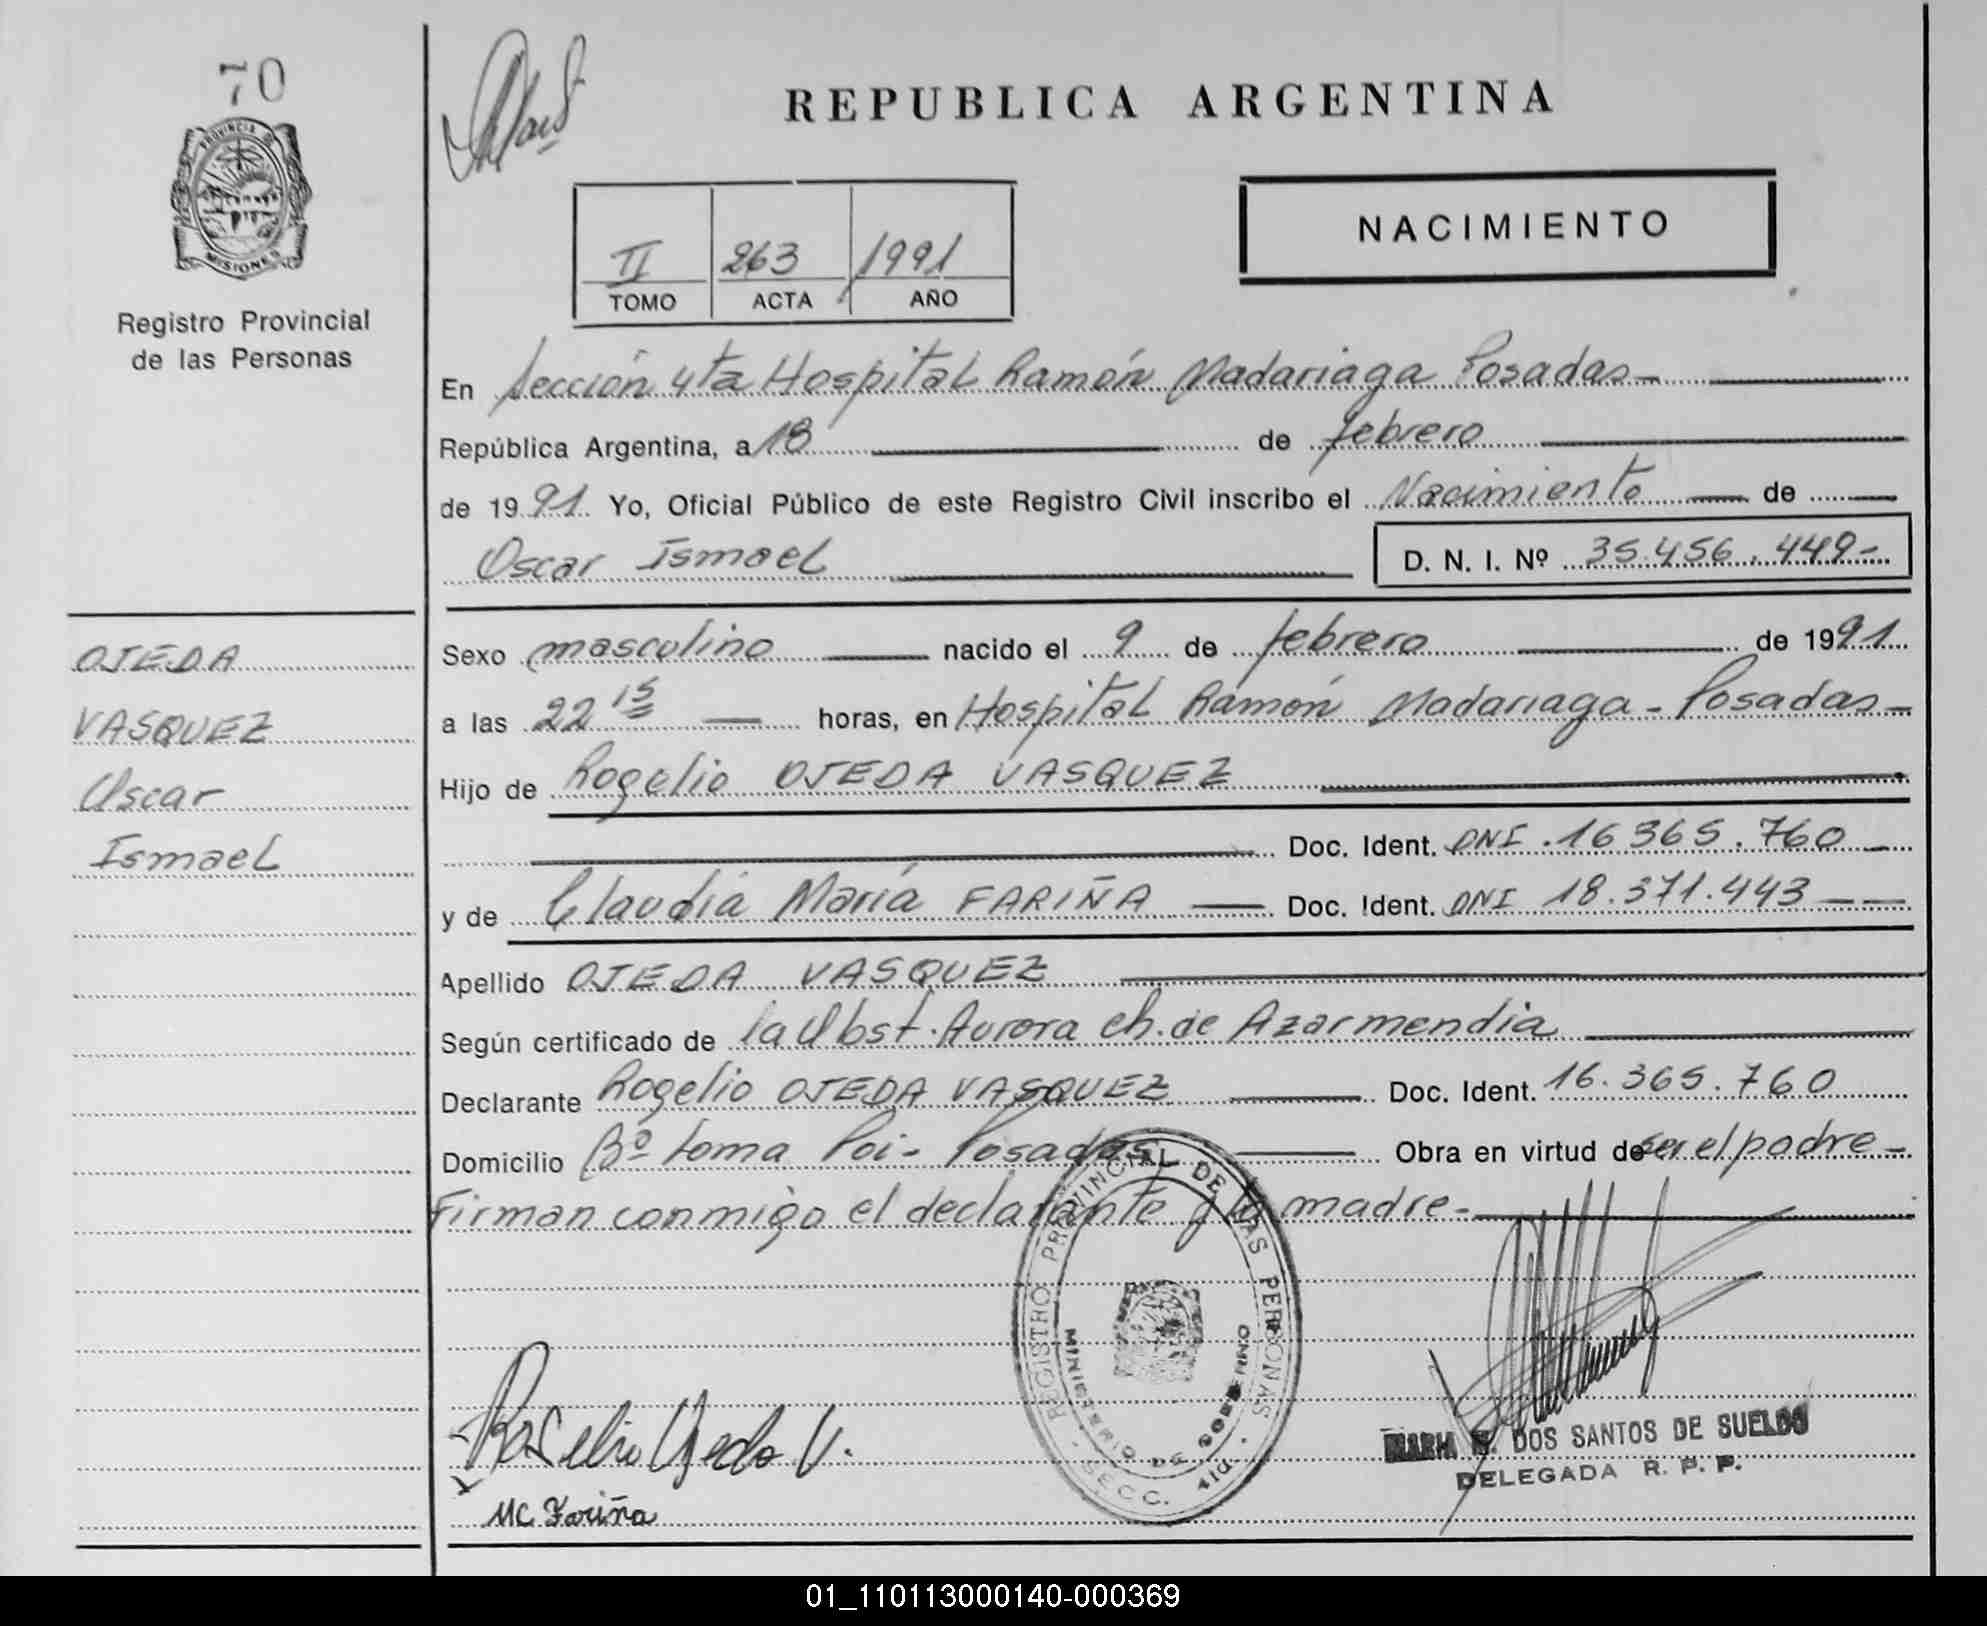 70
PROVINCIA D
MISIONES
Registro Provincial
de las Personas
OJEDA
VASQUEZ
Oscar
Ismael
REPUBLICA ARGENTINA
NACIMIENTO
II 263 1991
TOMO ACTA AÑO
En Sección 4ta Hospital Ramón Madariaga Posadas-
República Argentina, a 18 de febrero
de 1991. Yo, Oficial Público de este Registro Civil inscribo el Nacimiento de
Oscar Ismael D. N. I. Nº 35.456.449-
Sexo masculino nacido el 9 de febrero de 1991.
a las 22 15 horas, en Hospital Ramón Madariaga - Posadas-
Hijo de Rogelio OJEDA VASQUEZ
Doc. Ident. DNI. 16 365.760
y de Claudia María FARIÑA Doc. Ident. DNI 18.371.443
Apellido OJEDA VASQUEZ
Según certificado de la Obst. Aurora Ch. de Azarmendia
Declarante Rogelio OJEDA VASQUEZ Doc. Ident. 16.365.760
Domicilio Bº Loma Poi- Posadas Obra en virtud de ser el padre-
Firman conmigo el declarante y la madre-
REGISTRO PROVINCIAL DE LAS PERSONAS
MINISTERIO DE GOBIERNO
SECC. 4ta.
Rogelio Ojeda V.
MC Fariña
MARIA DOS SANTOS DE SUELDO
DELEGADA R. P. P.
01_110113000140-000369